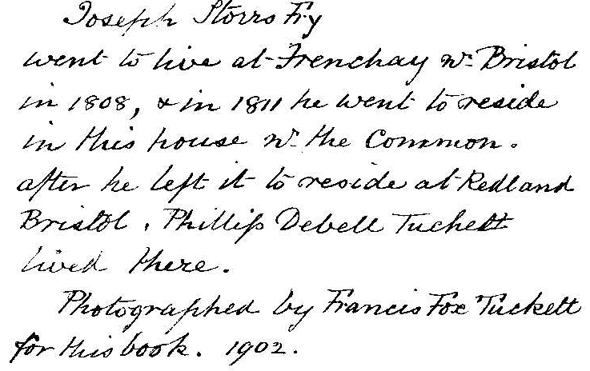 Joseph Storrs Fry
went to live at Frenchay nr. Bristol
in 1808, & in 1811 he went to reside
in this house nr. the Common.
after he left it to reside at Redland
Bristol. Phillip Debell Tuckett
lived there.
Photographed by Francis Fox Tuckett
for this book. 1902.